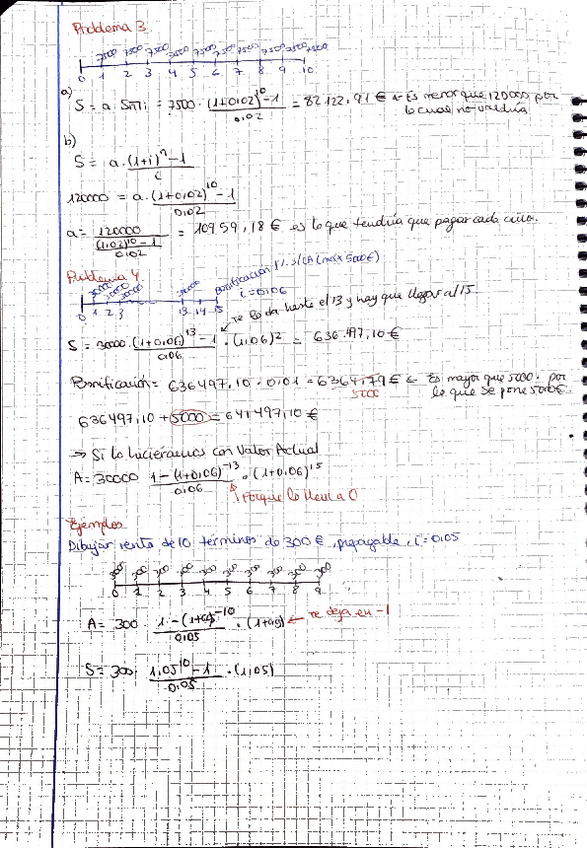 Problema 3.
7500 7500 7500 7500 7500 7500 7500 7500 7500 7500
0 1 2 3 4 5 6 7 8 9 10
a)
S = a · Sn¬i = 7500 · ((1+0,02)^10 - 1)/0,02 = 82122,91 € ← Es menor que 120000 por
lo cual no valdría
b)
S = a · ((1+i)^n - 1)/i
120000 = a · ((1+0,02)^10 - 1)/0,02
a = 120000/(((1,02)^10 - 1)/0,02) = 10959,18 € es lo que tendría que pagar cada año.
Problema 4.
30000 30000 30000 30000 Bonificación 1% s/CA (max 5000€)
0 1 2 3 13 14 15 i = 0,06
te lo da hasta el 13 y hay que llegar al 15.
S = 30000 · ((1+0,06)^13 - 1)/0,06 · (1,06)^2 = 636.497,10 €
Bonificación = 636497,10 · 0,01 = 6364,179 € ← Es mayor que 5000. por
5000 lo que se pone 5000€.
636497,10 + 5000 = 641497,10 €
→ Si lo hiciéramos con Valor Actual
A = 30000 (1 - (1+0,06)^-13)/0,06 · (1+0,06)^15
Porque lo lleva a 0
Ejemplos
Dibujar renta de 10 términos de 300 €, prepagable, i = 0,05
300 300 300 300 300 300 300 300 300 300
0 1 2 3 4 5 6 7 8 9
A = 300 · (1 - (1+ )^-10)/0,05 · (1+ ) ← te deja en -1
S = 300 · (1,05^10 - 1)/0,05 · (1,05)